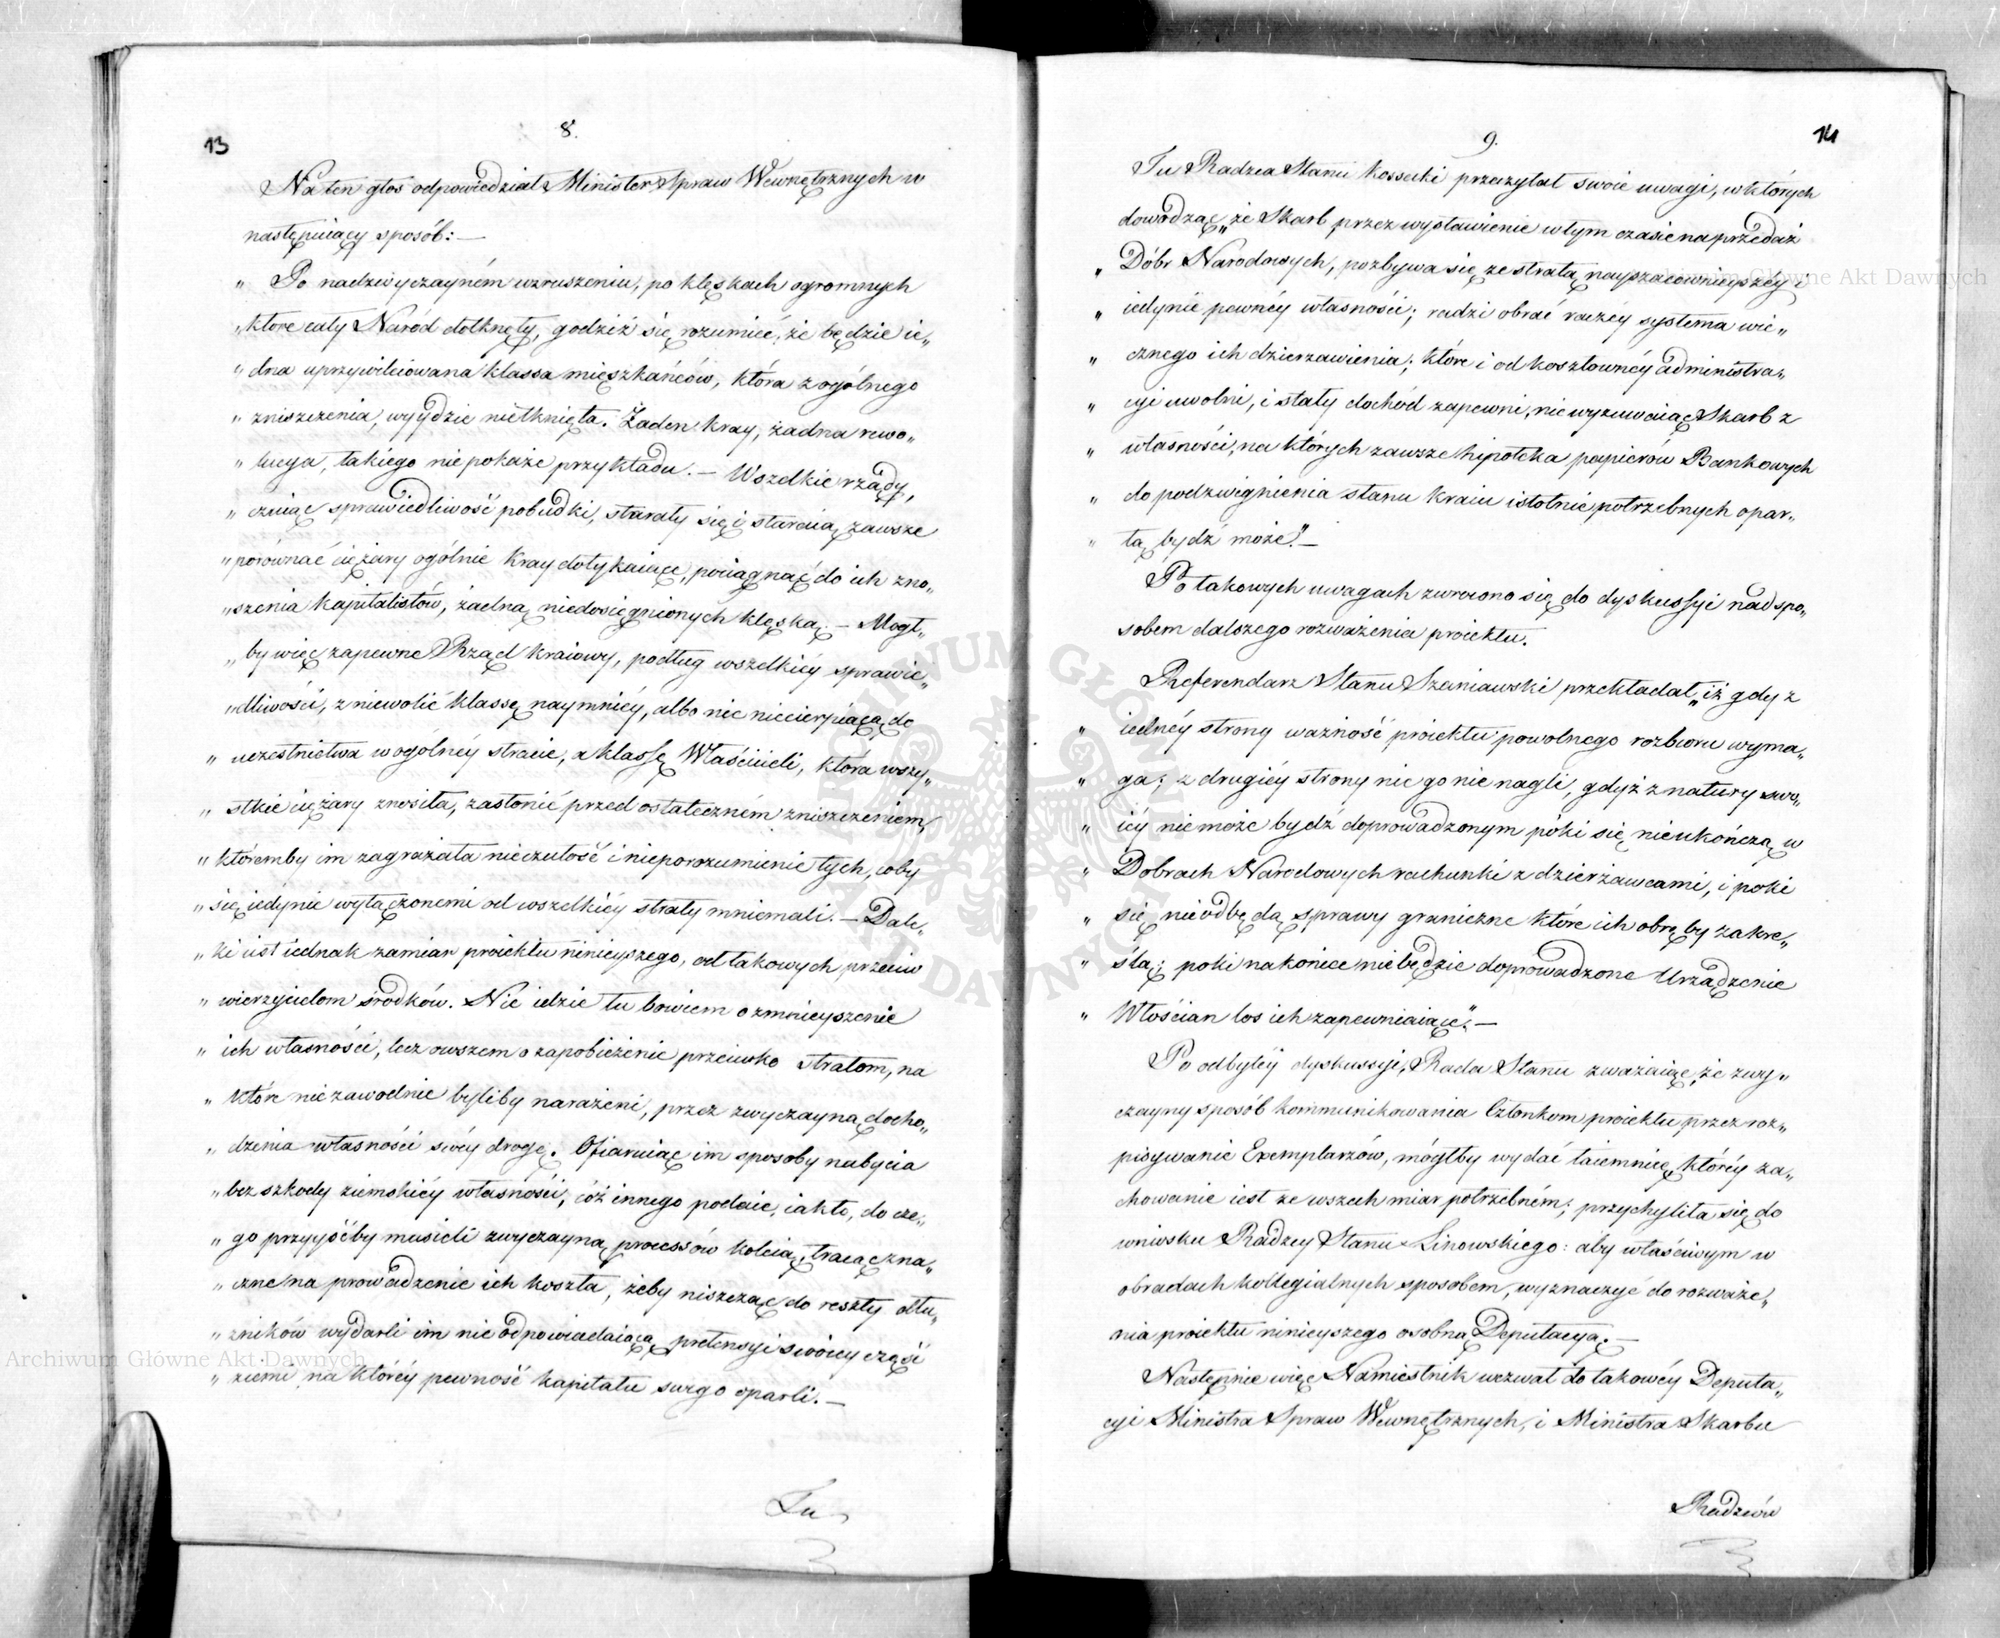 13
8.
Na ten głos odpowiedział Minister Spraw Wewnętrznych w
następuiący sposób: —
„ Po nadzwyczayném wzruszeniu, po klęskach ogromnych
„ które cały Naród dotknęły, godziż się rozumieć, że będzie ie„
„ dna uprzywileiowana klassa mięszkańców, która z ogólnego
„ zniszczenia, wyydzie nietknięta. Żaden kray, żadna rewo„
„ lucya, takiego nie pokaże przykładu. — Wszelkie rządy,
„ czuiąc sprawiedliwość pobudki, starały się i staraią zawsze
„ porównać ciężary ogólnie kray dotykaiące, pociągnąć do ich zno„
„ szenia kapitalistów, żadną niedosięgnionych klęską. — Mógł„
„ by więc zapewne Rząd kraiowy, podług wszelkiéy sprawie„
„ dliwości, zniewolić klassę naymniéy, albo nic niecierpiącą, do
„ uczestnictwa w ogolnéy stracie, a klassę Właścicieli, która wszy„
„ stkie ciężary znosiła, zasłonić przed ostateczném zniszczeniem,
„ którémby im zagrażała nieczułość i nieporozumienie tych, coby
„ się iedynie wyłączonemi od wszelkiéy straty mniemali. — Dale„
„ ki iest iednak zamiar proiektu ninieyszego, od takowych przeciw
„ wierzycielom środków. Nie idzie tu bowiem o zmnieyszenie
„ ich własności, lecz owszem o zapobieżenie przeciwko stratom, na
„ które niezawodnie byliby narażeni, przez zwyczayną docho„
„ dzenia własności swéy drogę. Ofiaruiąc im sposoby nabycia
„ bez szkody ziemskiéy własności, cóż innego podaie, iak to, do cze„
„ go przyyśćby musieli zwyczayną processów koleią, tracąc zna„
„ czne na prowadzenie ich koszta, żeby niszcząc do reszty dłu„
„ żników wydarli im nie odpowiadaiącą pretensyi swoiéy część
„ ziemi na któréy pewność kapitału swego oparli. —
Tu
14
9.
Tu Radzca Stanu Kossecki przeczytał swoie uwagi, w których
dowodząc „że Skarb przez wystawienie w tym czasie na przedaż
„ Dóbr Narodowych, pozbywa się ze stratą nayszacownieyszéy i
„ iedynie pewnéy własności; radzi obrać raczéy systema wie„
„ cznego ich dzierzawienia; które i od kosztownéy administra„
„ cyi uwolni, i stały dochód zapewni, nie wyzuwaiąc Skarb z
„ własności, na których zawsze hipoteka papierów Bankowych
„ do podzwignienia stanu kraiu istotnie potrzebnych opar„
„ tą bydź może". —
Po takowych uwagach zwrocono się do dyskussyi nad spo„
sobem dalszego rozważenia proiektu.
Referendarz Stanu Szaniawski przekładał, „iż gdy z
„ iednéy strony ważność proiektu powolnego rozbioru wyma„
„ ga; z drugiéy strony nic go nie nagli, gdyż z natury swo„
„ iéy nie może bydź doprowadzonym póki się nieukończą w
„ Dobrach Narodowych rachunki z dzierżawcami, i poki
„ się nie odbędą sprawy graniczne które ich obręby zakre„
„ ślą; poki nakoniec nie będzie doprowadzone Urządzenie
„ Włościan los ich zapewniaiące". —
Po odbytéy dyskussyi, Rada Stanu zważaiąc, że zwy„
czayny sposób kommunikowania Członkom proiektu przez roz„
pisywanie Exemplarzów, mógłby wydać taiemnicę, któréy za„
chowanie iest ze wszech miar potrzebném; przychyliła się do
wniosku Radzcy Stanu Linowskiego: aby właściwym w
obradach kollegialnych sposobem, wyznaczyć do rozważe„
nia proiektu ninieyszego osobną Deputacyą. —
Następnie więc Namiestnik wezwał do takowéy Deputa„
cyi Ministra Spraw Wewnętrznych, i Ministra Skarbu
Radzców
Archiwum Główne Akt Dawnych
Archiwum Główne Akt Dawnych
ARCHIWUM GŁÓWNE AKT DAWNYCH